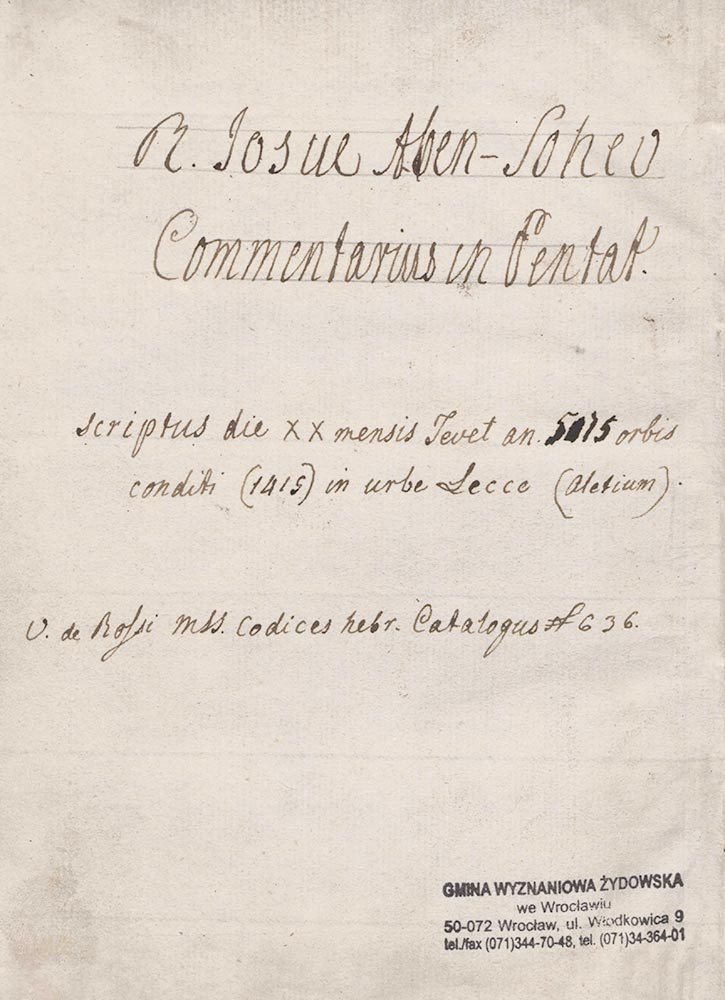 R. Iosue Aben-Sohev
Commentarius in Pentat.
scriptus die XX mensis Tevet an. 5175 orbis
conditi (1415) in urbe Lecce (Aletium).
V. de Rossi MSS. Codices hebr. Catalogus # 636.
GMINA WYZNANIOWA ŻYDOWSKA
we Wrocławiu
50-072 Wrocław, ul. Włodkowica 9
tel./fax (071)344-70-48, tel. (071)34-364-01